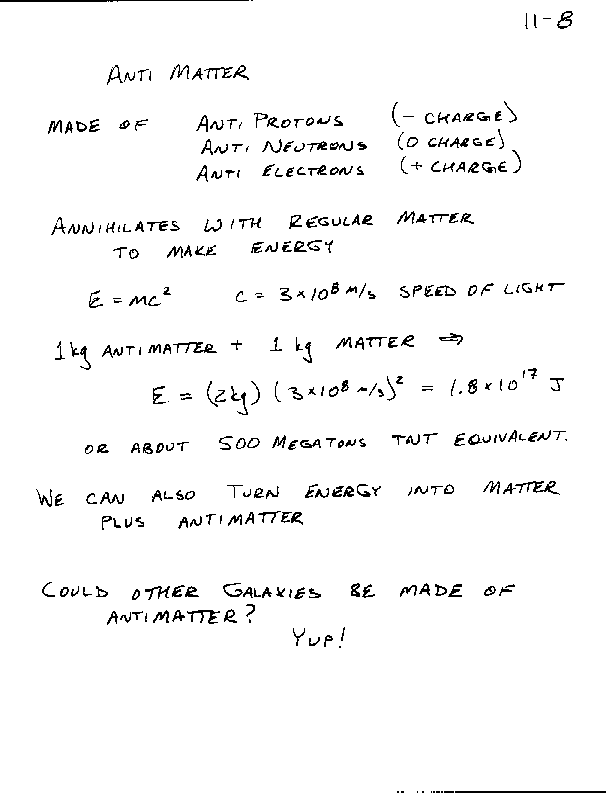 11-8
ANTI MATTER
MADE OF ANTI PROTONS (- CHARGE)
ANTI NEUTRONS (0 CHARGE)
ANTI ELECTRONS (+ CHARGE)
ANNIHILATES WITH REGULAR MATTER
TO MAKE ENERGY
E = mc² C = 3×10⁸ m/s SPEED OF LIGHT
1 kg ANTIMATTER + 1 kg MATTER ⇒
E = (2kg) (3×10⁸ m/s)² = 1.8×10¹⁷ J
OR ABOUT 500 MEGATONS TNT EQUIVALENT.
WE CAN ALSO TURN ENERGY INTO MATTER
PLUS ANTIMATTER
COULD OTHER GALAXIES BE MADE OF
ANTIMATTER?
YUP!